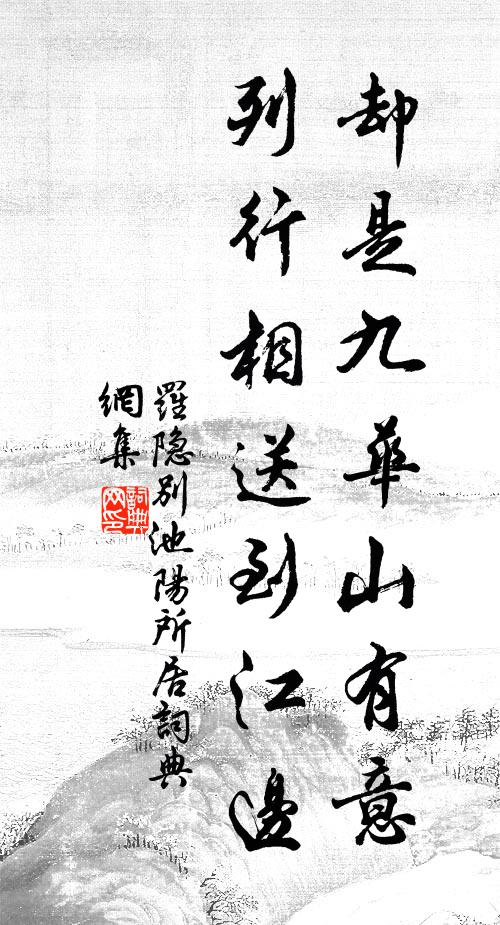 却是九華山有意
列行相送到江邊
羅隐別池陽所居詞典
網集
詞典
网印